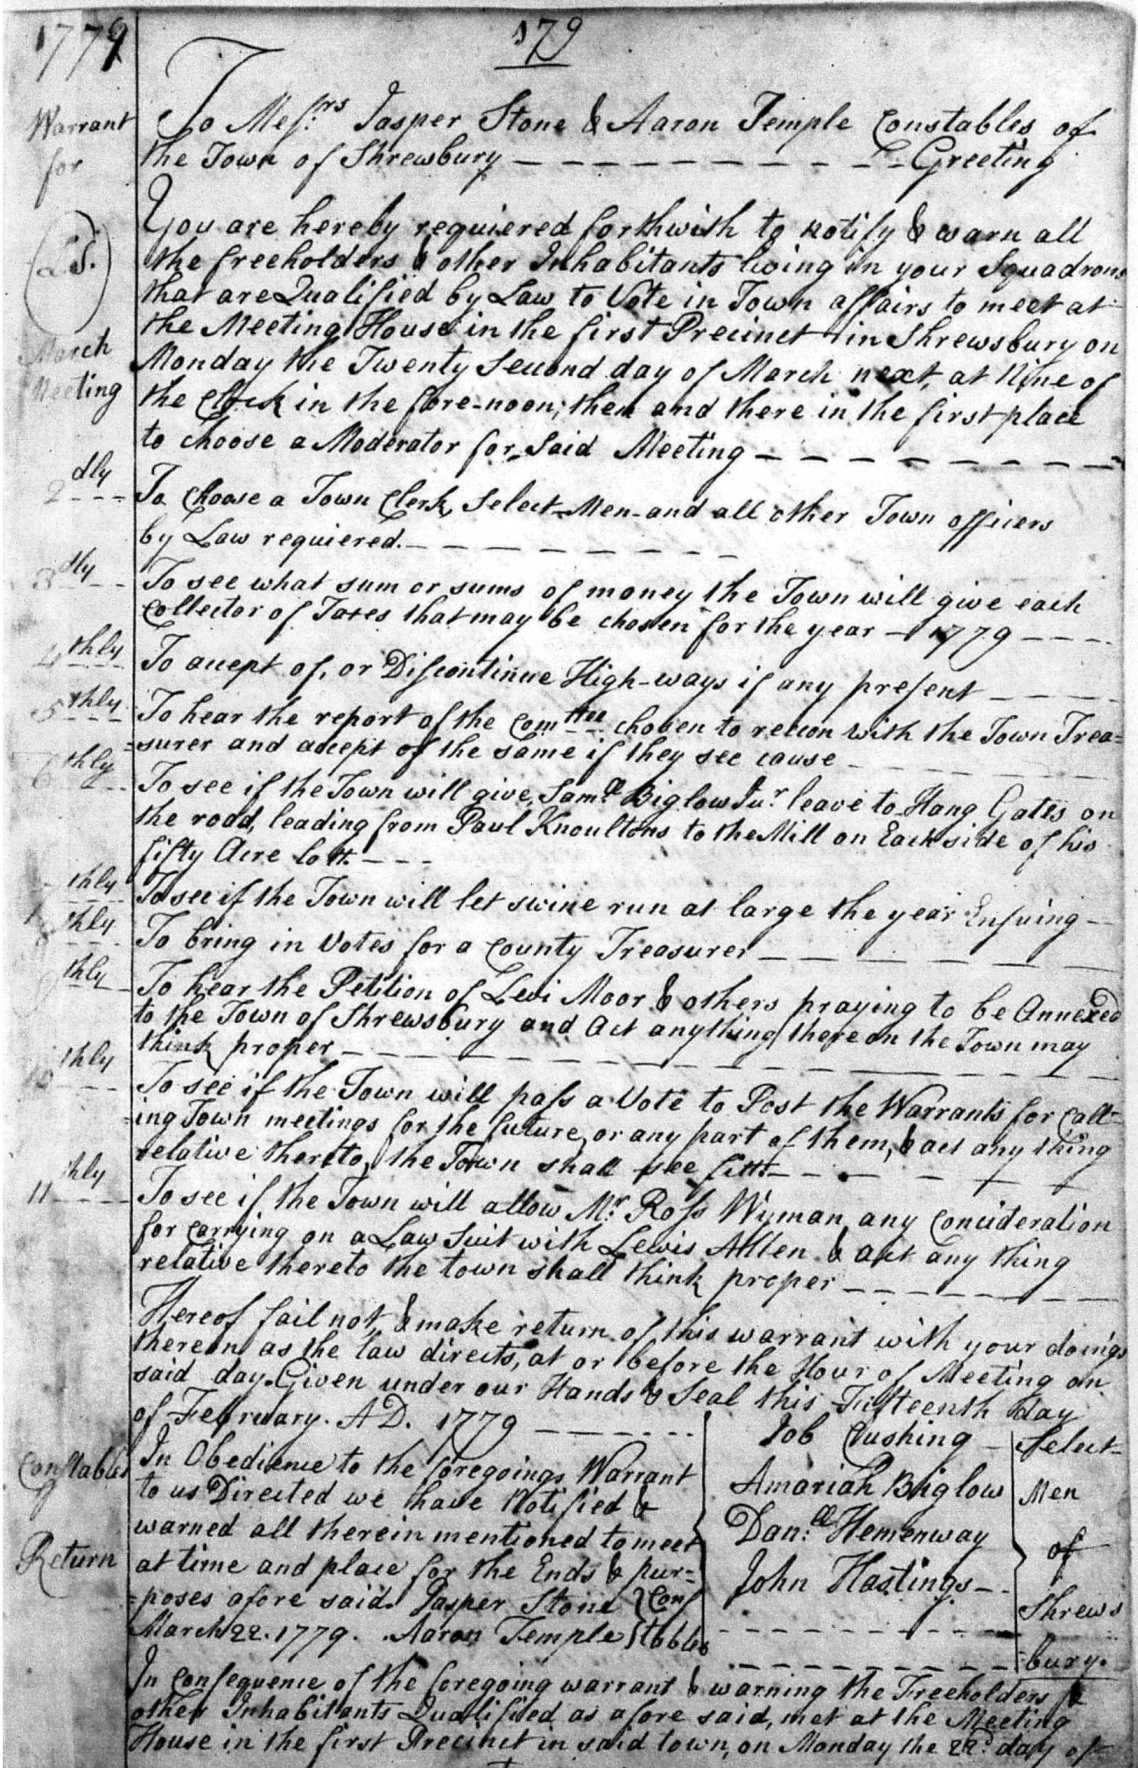 1779
179
Warrant
for
(L.S.)
March
Meeting
To Mess.rs Jasper Stone & Aaron Temple Constables of
the Town of Shrewsbury — — — — — — — — Greeting
You are hereby requiered forthwith to notify & warn all
the freeholders & other Inhabitants living in your Squadrons
that are Qualified by Law to Vote in Town affairs to meet at
the Meeting House in the first Precinct in Shrewsbury on
Monday the Twenty Second day of March next, at Nine of
the Clock in the fore-noon; then and there in the first place
to choose a Moderator for Said Meeting — — — — — — —
2dly To Choose a Town Clerk, Select-Men and all other Town officers
by Law requiered. — — — — — — —
3dly To see what sum or sums of money the Town will give each
Collector of Taxes that may be chosen for the year — 1779 — — —
4thly To accept of, or Discontinue High-ways if any present — — —
5thly To hear the report of the Comttee chosen to reccon with the Town Trea=
=surer and accept of the same if they see cause — — — — —
6thly To see if the Town will give, Saml. Biglow Jur. leave to Hang Gates on
the road, leading from Paul Knoultons to the Mill on Each side of his
fifty Acre lott. — — —
thly To see if the Town will let swine run at large the year Ensuing —
8thly To bring in Votes for a County Treasurer — — — — — —
9thly To hear the Petition of Levi Moor & others praying to be Annexed
to the Town of Shrewsbury and Act anything there on the Town may
think proper — — — — — — — — — — — —
10thly To see if the Town will pass a Vote to Post the Warrants for Call=
=ing Town meetings for the future, or any part of them, & act any thing
relative thereto, the Town shall see fitt — — — — — —
11thly To see if the Town will allow Mr. Ross Wyman any Concideration
for carrying on a Law Suit with Lewis Allen & act any thing
relative thereto the town shall think proper — — — — — —
Hereof fail not, & make return of this warrant with your doings
thereon as the law directs, at or before the Hour of Meeting on
said day. Given under our Hands & Seal this Fifteenth day
of February. A.D. 1779 — — — —
Job Cushing
Amariah Biglow
Danll. Hemenway
John Hastings
Select-
Men
of
Shrews
bury.
Constables
Return
In Obedience to the foregoings Warrant
to us Directed we have Notified &
warned all therein mentioned to meet
at time and place for the Ends & pur=
=poses afore said. Jasper Stone } Cons
March 22. 1779. Aaron Temple } tables
In Consequence of the foregoing warrant & warning the Freeholders &
other Inhabitants Qualified as afore said, met at the Meeting
House in the first Precinct in said town, on Monday the 22d. day of